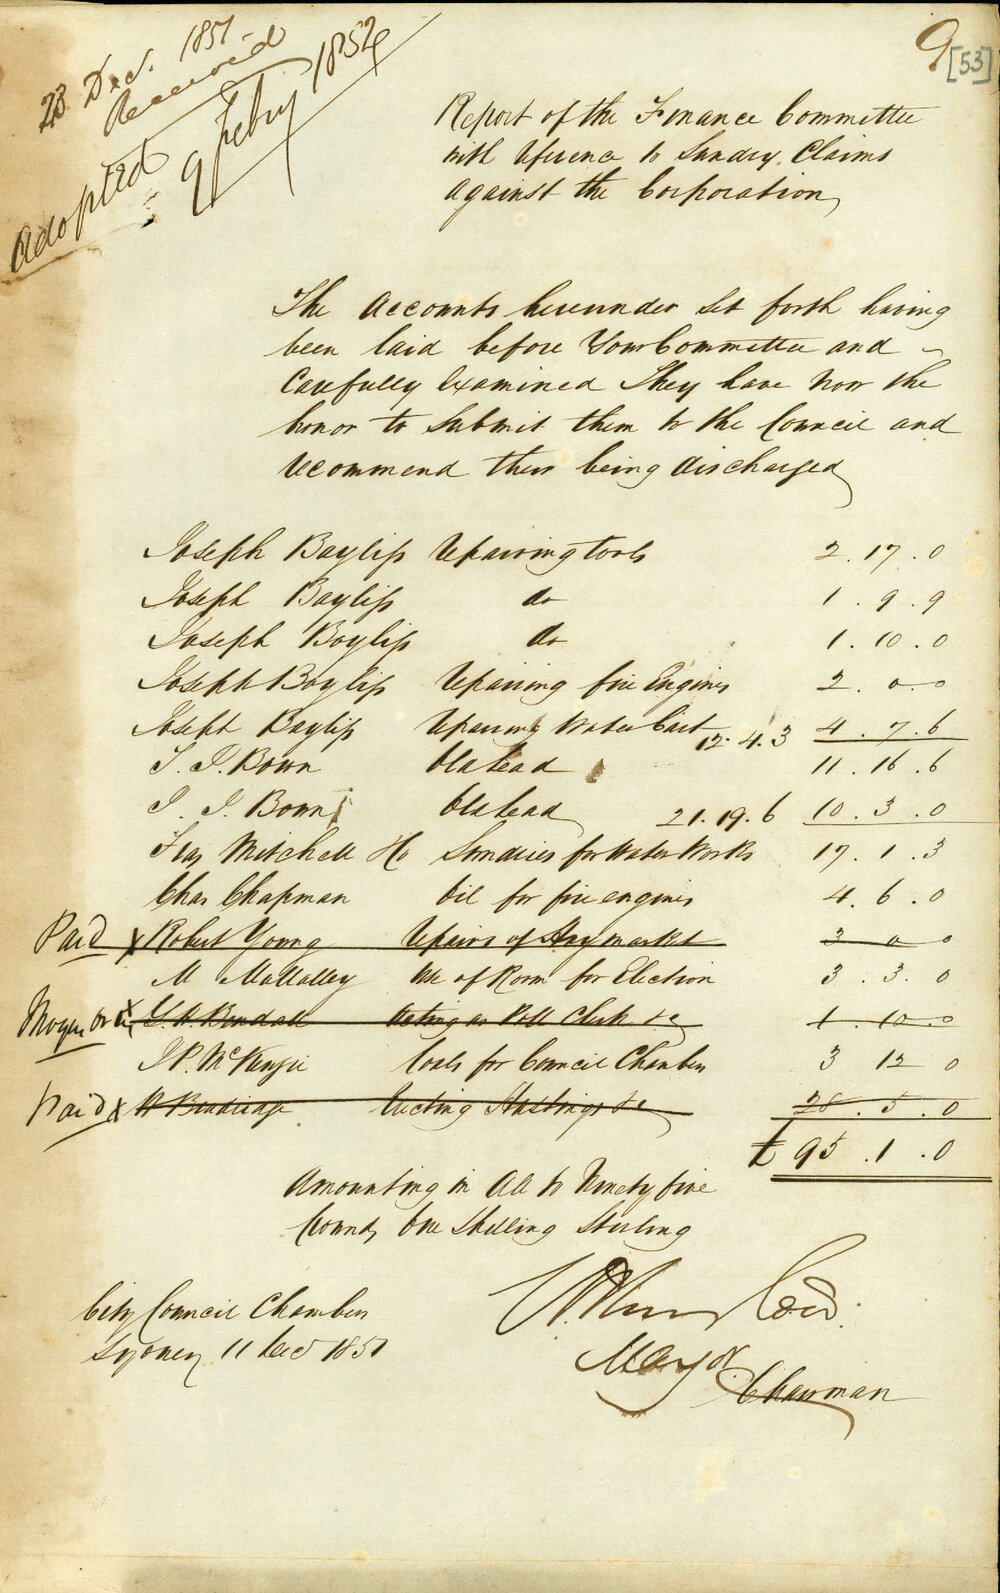 9
[53]
23 Decr. 1851
Received
Adopted
9 Feby 1852
Report of the Finance Committee
with reference to Sundry Claims
against the Corporation
The Accounts hereunder set forth having
been laid before Your Committee and
Carefully examined They have now the
honor to submit them to the Council and
recommend their being discharged
Joseph Bayliss repairing tools 2.17.0
Joseph Bayliss do 1.9.9
Joseph Bayliss do 1.10.0
Joseph Bayliss repairing fire Engines 2.0.0
Joseph Bayliss repairing Water Cart 12.4.3 4.7.6
T. J. Bown 11.16.6
T. J. Bown 21.19.6 10.3.0
Jas Mitchell Sundries for Water Works 17.1.3
Chas Chapman Oil for fire engines 4.6.0
Paid x Robert Young repairs of Haymarket 3 0 0
M use of Room for Election 3.3.0
x Acting as Poll Clerk &c 1.10.0
J P. McKenzie Coals for Council Chamber 3 12 0
Paid x Erecting Hustings &c 28.5.0
£95.1.0
Amounting in all to Ninety five
Pounds One Shilling Sterling
City Council Chamber
Sydney 11 Decr 1851
Mayor
Chairman